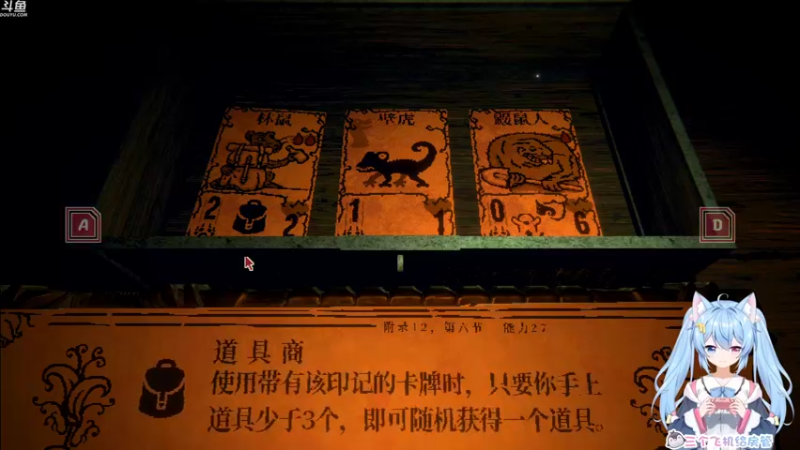 斗鱼
DOUYU.COM
林鼠
壁虎
鼹鼠人
2
2
1
1
0
6
A
D
附录12，第六节 能力27
道具商
使用带有该印记的卡牌时，只要你手上
道具少于3个，即可随机获得一个道具。
三个飞机给房管